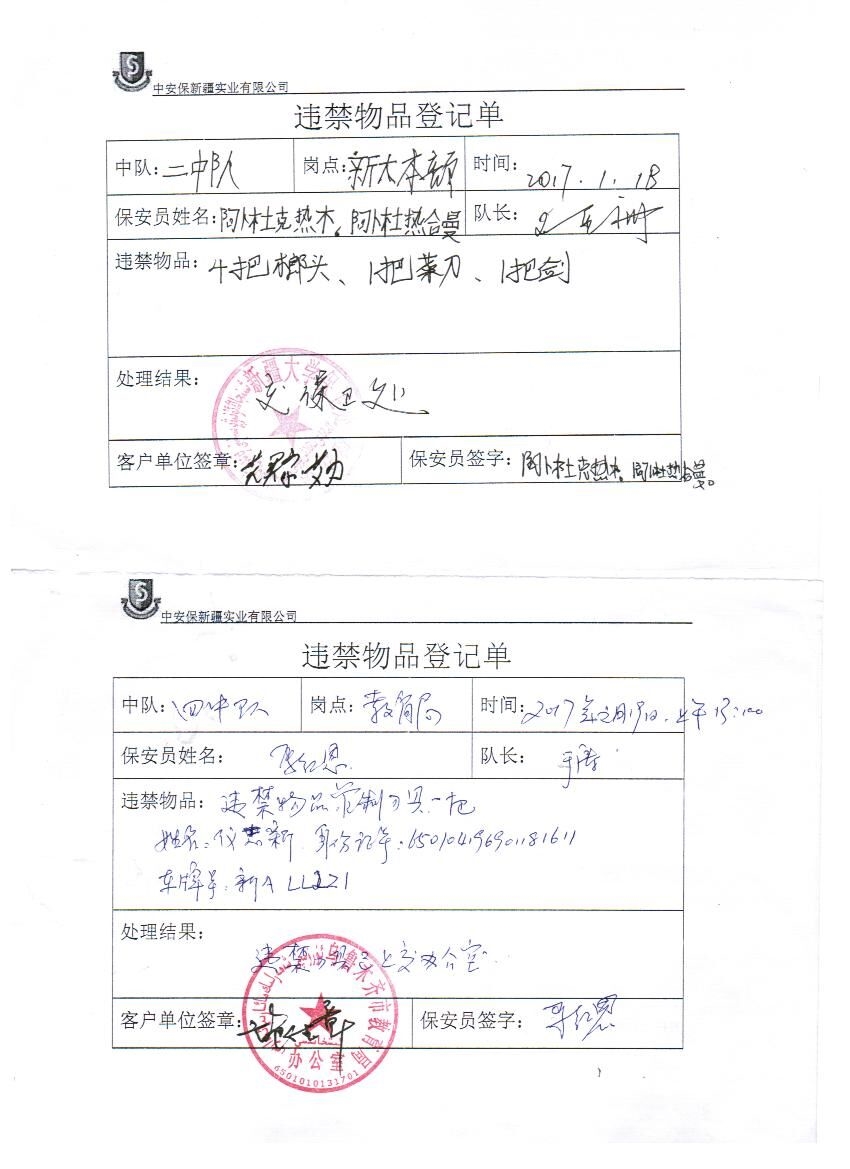 中安保新疆实业有限公司
违禁物品登记单
中队：二中队 岗点：新大本部 时间：2017.1.18
保安员姓名：阿卜杜克热木。阿卜杜热合曼 队长：
违禁物品：4把榔头、1把菜刀、1把剑
处理结果：交保卫处
新疆大学
客户单位签章： 保安员签字：阿卜杜克热木。阿卜杜热合曼。
中安保新疆实业有限公司
违禁物品登记单
中队：四中队 岗点：教育局 时间：2017年2月19日．上午13:00
保安员姓名： 队长：
违禁物品：违禁物品管制刀具一把
姓名： 新 身份证号：650104196901181611
车牌号：新A LL221
处理结果：
违禁 上交办公室．
乌鲁木齐市教育局
客户单位签章： 保安员签字：
办公室
6501010131701